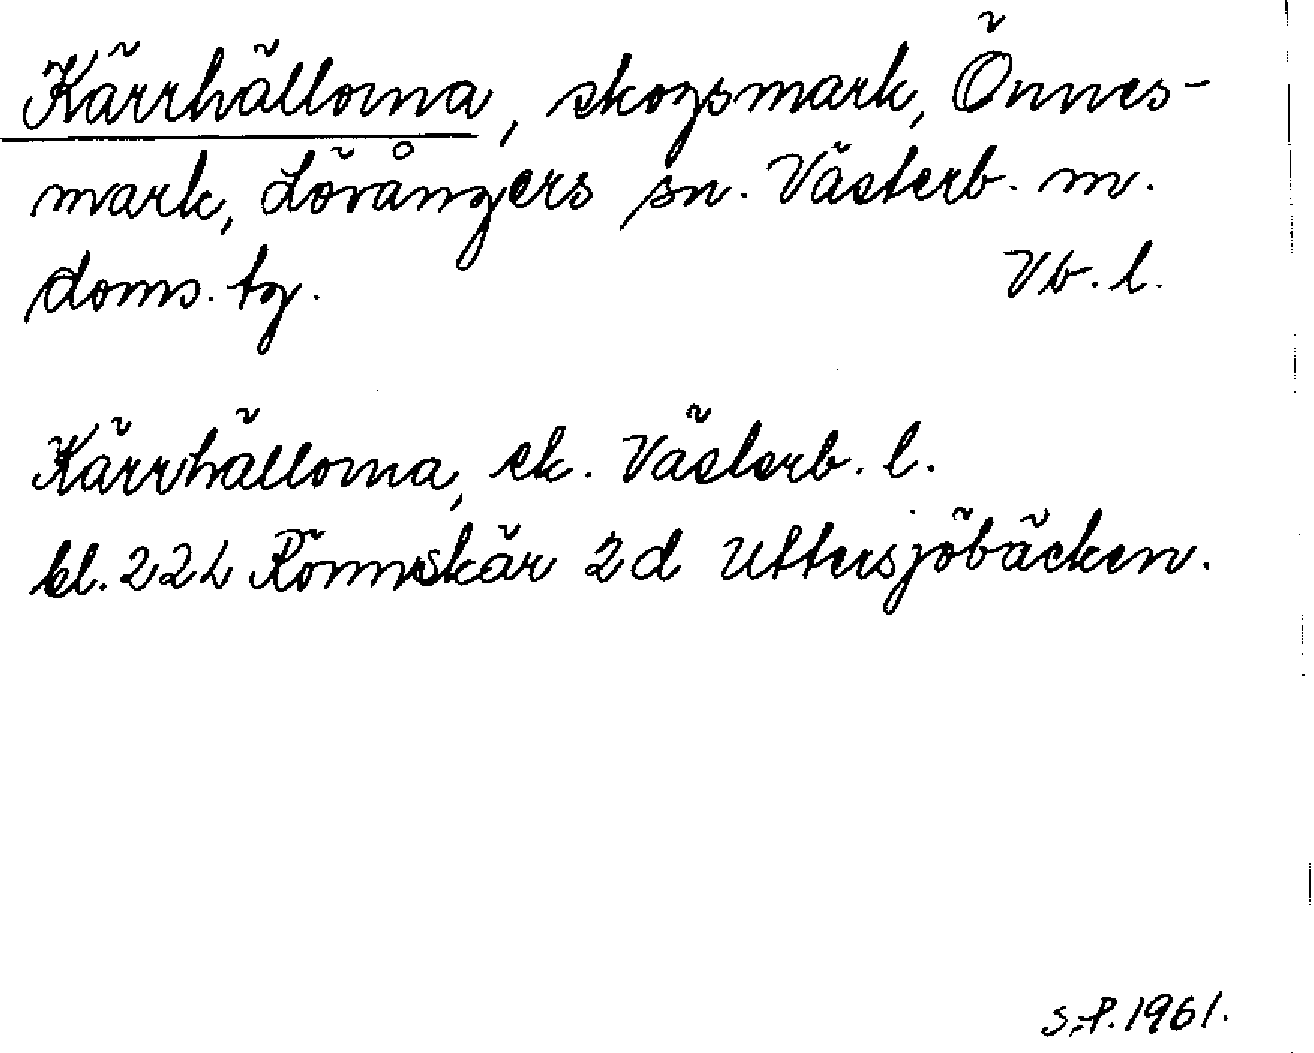 Kärrhällorna, skogsmark, Önnes-
mark, Lövångers sn. Västerb. m.
doms. tg. Vb. l.
Kärrhällorna, ek. Västerb. l.
bl. 22L Rönnskär 2d Uttersjöbäcken.
S.P. 1961.